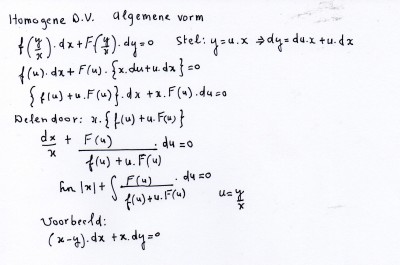 Homogene D.V. Algemene vorm
f(y/x).dx+F(y/x).dy=0 Stel: y=u.x ⇒dy=du.x+u.dx
f(u).dx+F(u).{x.du+u.dx}=0
{f(u)+u.F(u)}.dx+x.F(u).du=0
Delen door: x.{f(u)+u.F(u)}
dx/x + F(u)/(f(u)+u.F(u)) .du=0
ln|x|+∫ F(u)/(f(u)+u.F(u)) .du=0 u=y/x
Voorbeeld:
(x-y).dx+x.dy=0